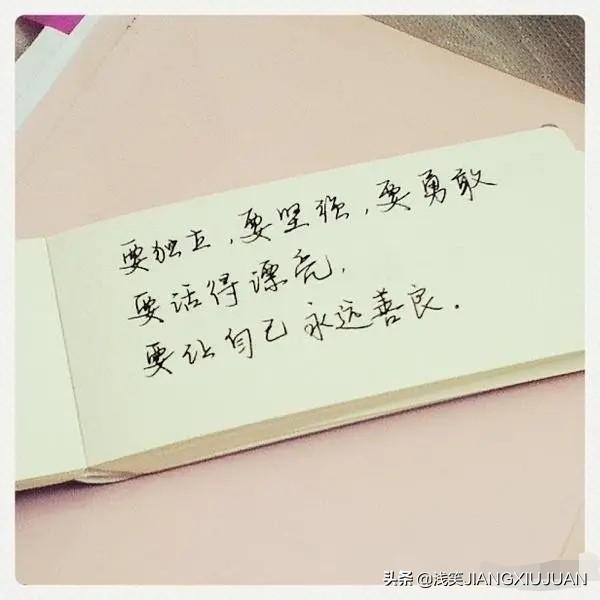 要独立，要坚强，要勇敢
要活得漂亮，
要让自己永远善良.
头条 @浅笑JIANGXIUJUAN